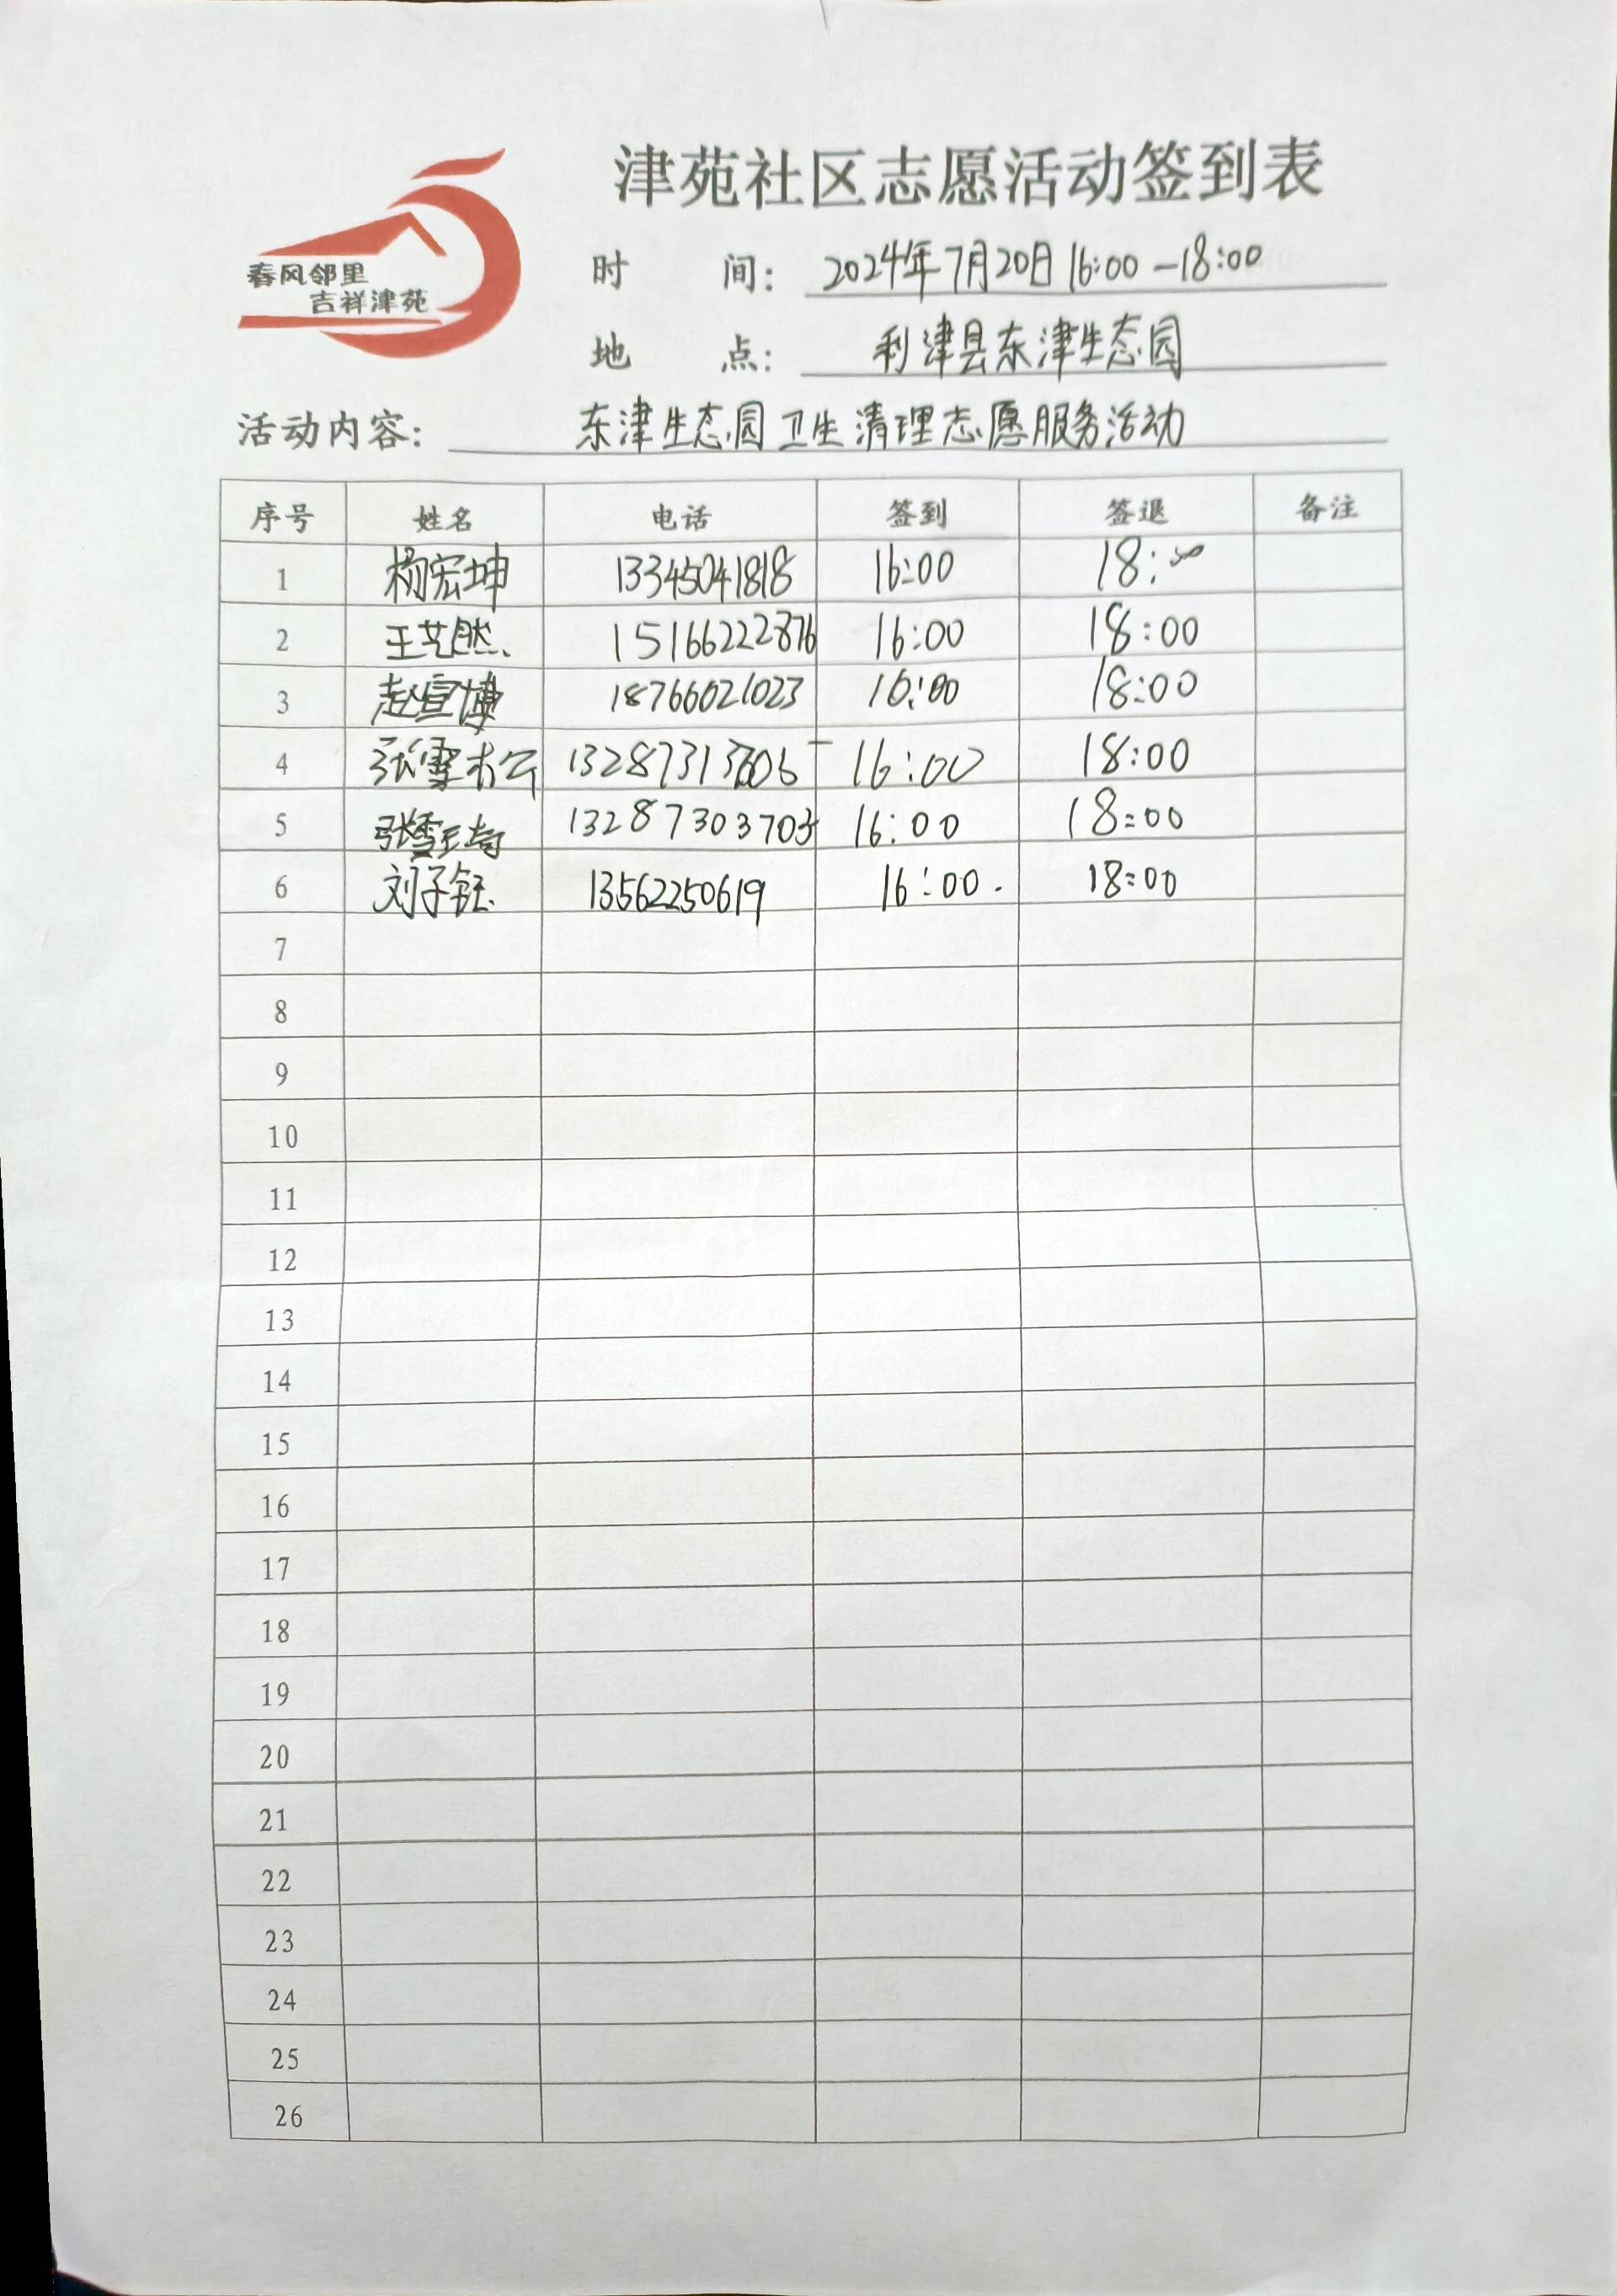 津苑社区志愿活动签到表
春风邻里
吉祥津苑
时 间: 2024年7月20日 16:00-18:00
地 点: 利津县东津生态园
活动内容: 东津生态园卫生清理志愿服务活动
序号 姓名 电话 签到 签退 备注
1 杨宏坤 13345041818 16:00 18:00
2 王艺然 15166222876 16:00 18:00
3 赵宣博 18766021023 16:00 18:00
4 张雪松 16:00 18:00
5 张雪琦 13287303703 16:00 18:00
6 刘子钰 13562250619 16:00. 18:00
7
8
9
10
11
12
13
14
15
16
17
18
19
20
21
22
23
24
25
26